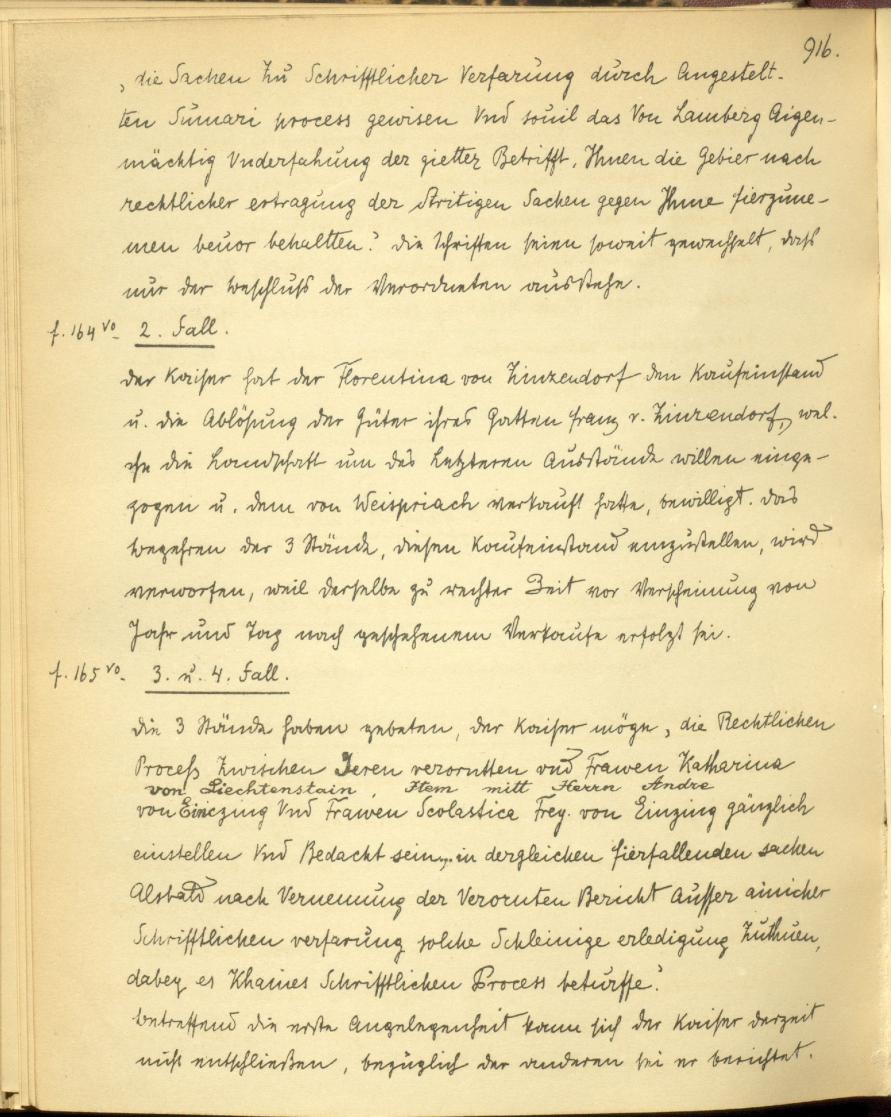 916.
„die Sachen Zu Schrifftlicher Verfarung durch Angestelt-
ten Sumari process gewisen Vnd souil das Von Lamberg Aigen-
mächtig Vnderfahung der güetter Betrifft, Ihnen die Gebier nach
rechtlicher ertragung der Stritigen Sachen gegen Ihme fierzune-
men beuor behaltten." Die Schriften seien soweit gewechselt, dass
nur der Beschluss der Verordneten ausstehe.
f. 164 vo. 2. Fall.
Der Kaiser hat der Florentina von Zinzendorf den Kaufeinstand
u. die Ablösung der Güter ihres Gatten Franz v. Zinzendorf, wel-
che die Landschaft um des Letzteren Ausstände willen einge-
zogen u. dem von Weispriach verkauft hatte, bewilligt. Das
Begehren der 3 Stände, diesen Kaufeinstand einzustellen, wird
verworfen, weil derselbe zu rechter Zeit vor Verscheinung von
Jahr und Tag nach geschehenem Verkaufe erfolgt sei.
f. 165 vo. 3. u. 4. Fall.
Die 3 Stände haben gebeten, der Kaiser möge „die Rechtlichen
Process Zwischen Jeren verorntten vnd Frawen Katharina
von Liechtenstain, Item mitt Herrn Andre
von Einczing Vnd Frawen Scolastica Frey. von Einzing gänzlich
einstellen Vnd Bedacht sein, in dergleichen fierfallenden sachen
Alsbald nach Vernemung der Verornten Bericht Ausser ainicher
Schrifftlichen verfarung solche Schleinige erledigung Zuthuen,
dabey es Khaines Schrifftlichen Process beturffe."
Betreffend die erste Angelegenheit kann sich der Kaiser derzeit
nicht entschließen, bezüglich der anderen sei er berichtet.